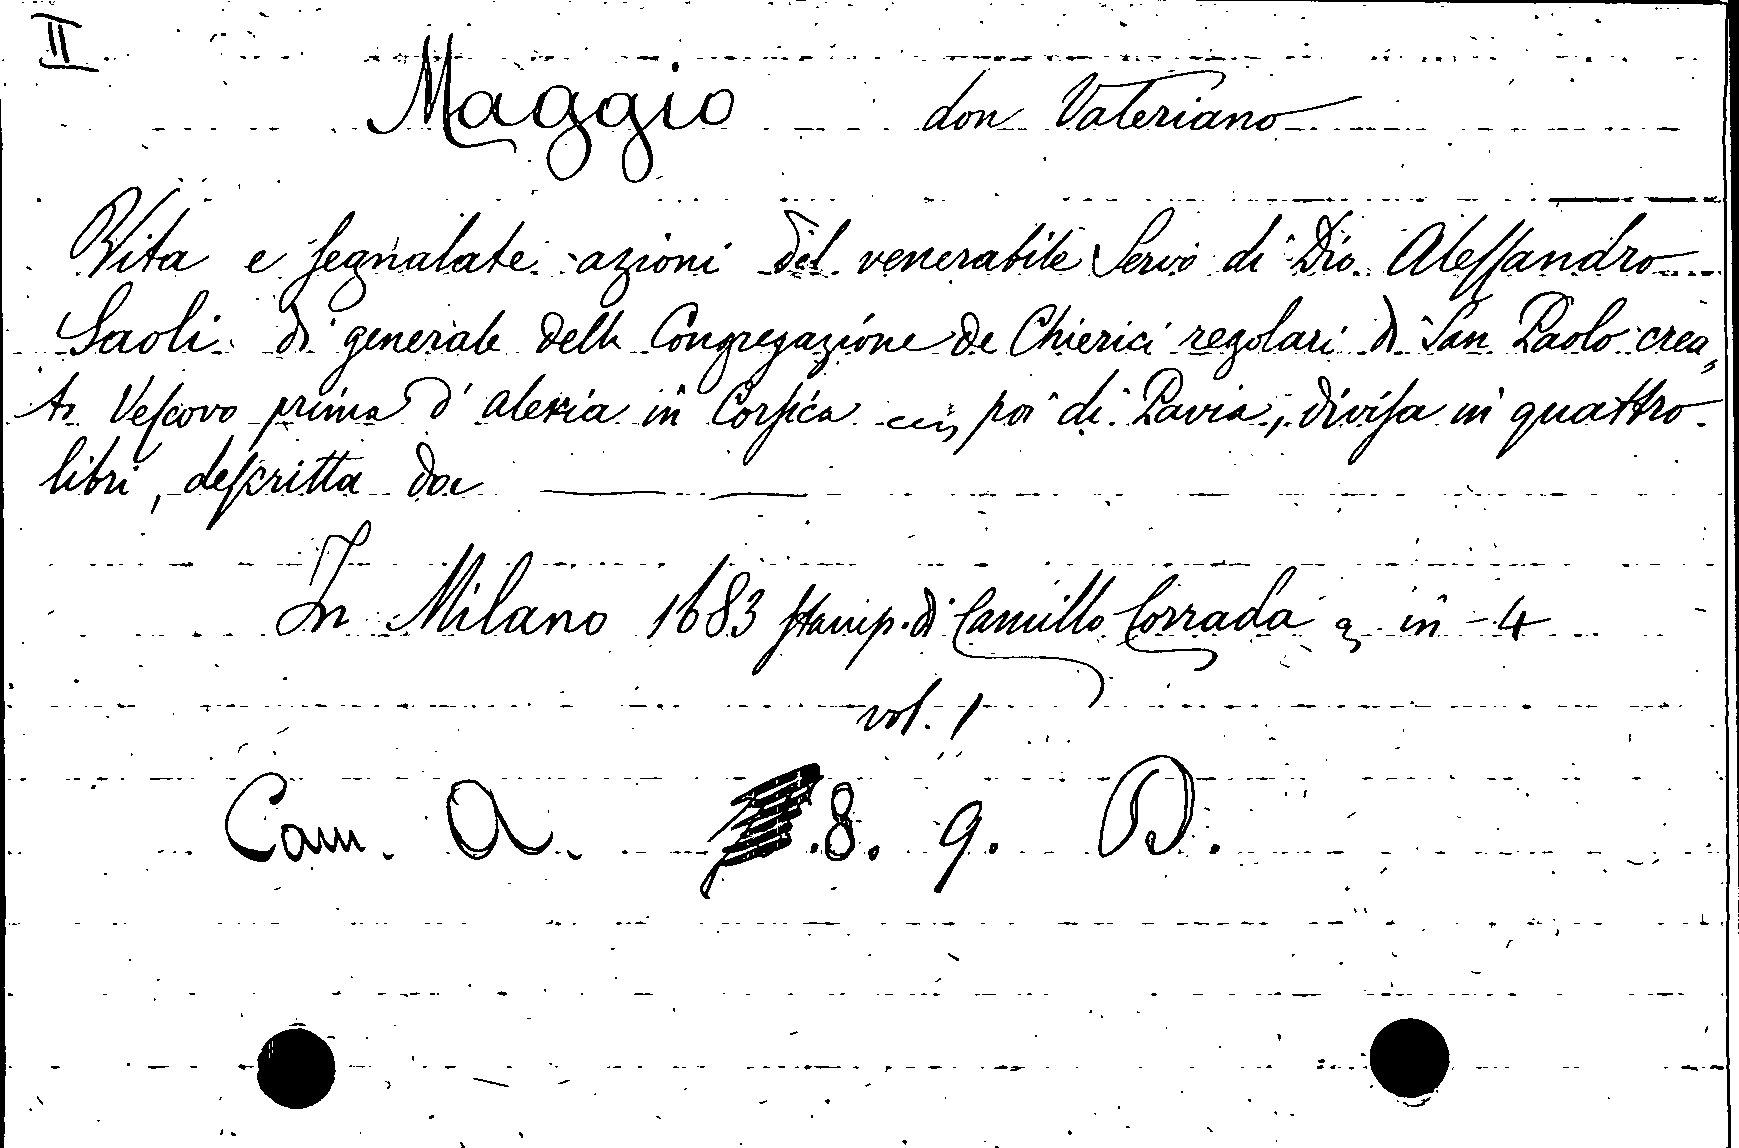 II
Maggio don Valeriano
Vita e segnalate azioni del venerabile Servo di Dio Alessandro
Saoli di generale della Congregazione de Chierici regolari di San Paolo crea,
to Vescovo prima d'Aleria in Corsica poi di Pavia, divisa in quattro
libri, descritta da — —
In Milano 1683 stamp. di Camillo Corrada in - 4
vol. 1
Cam. A. .8. 9. D.